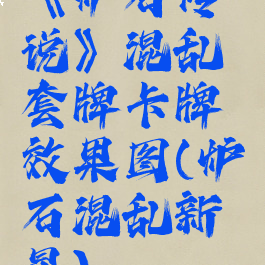 《炉石传
说》混乱
套牌卡牌
效果图(炉
石混乱新